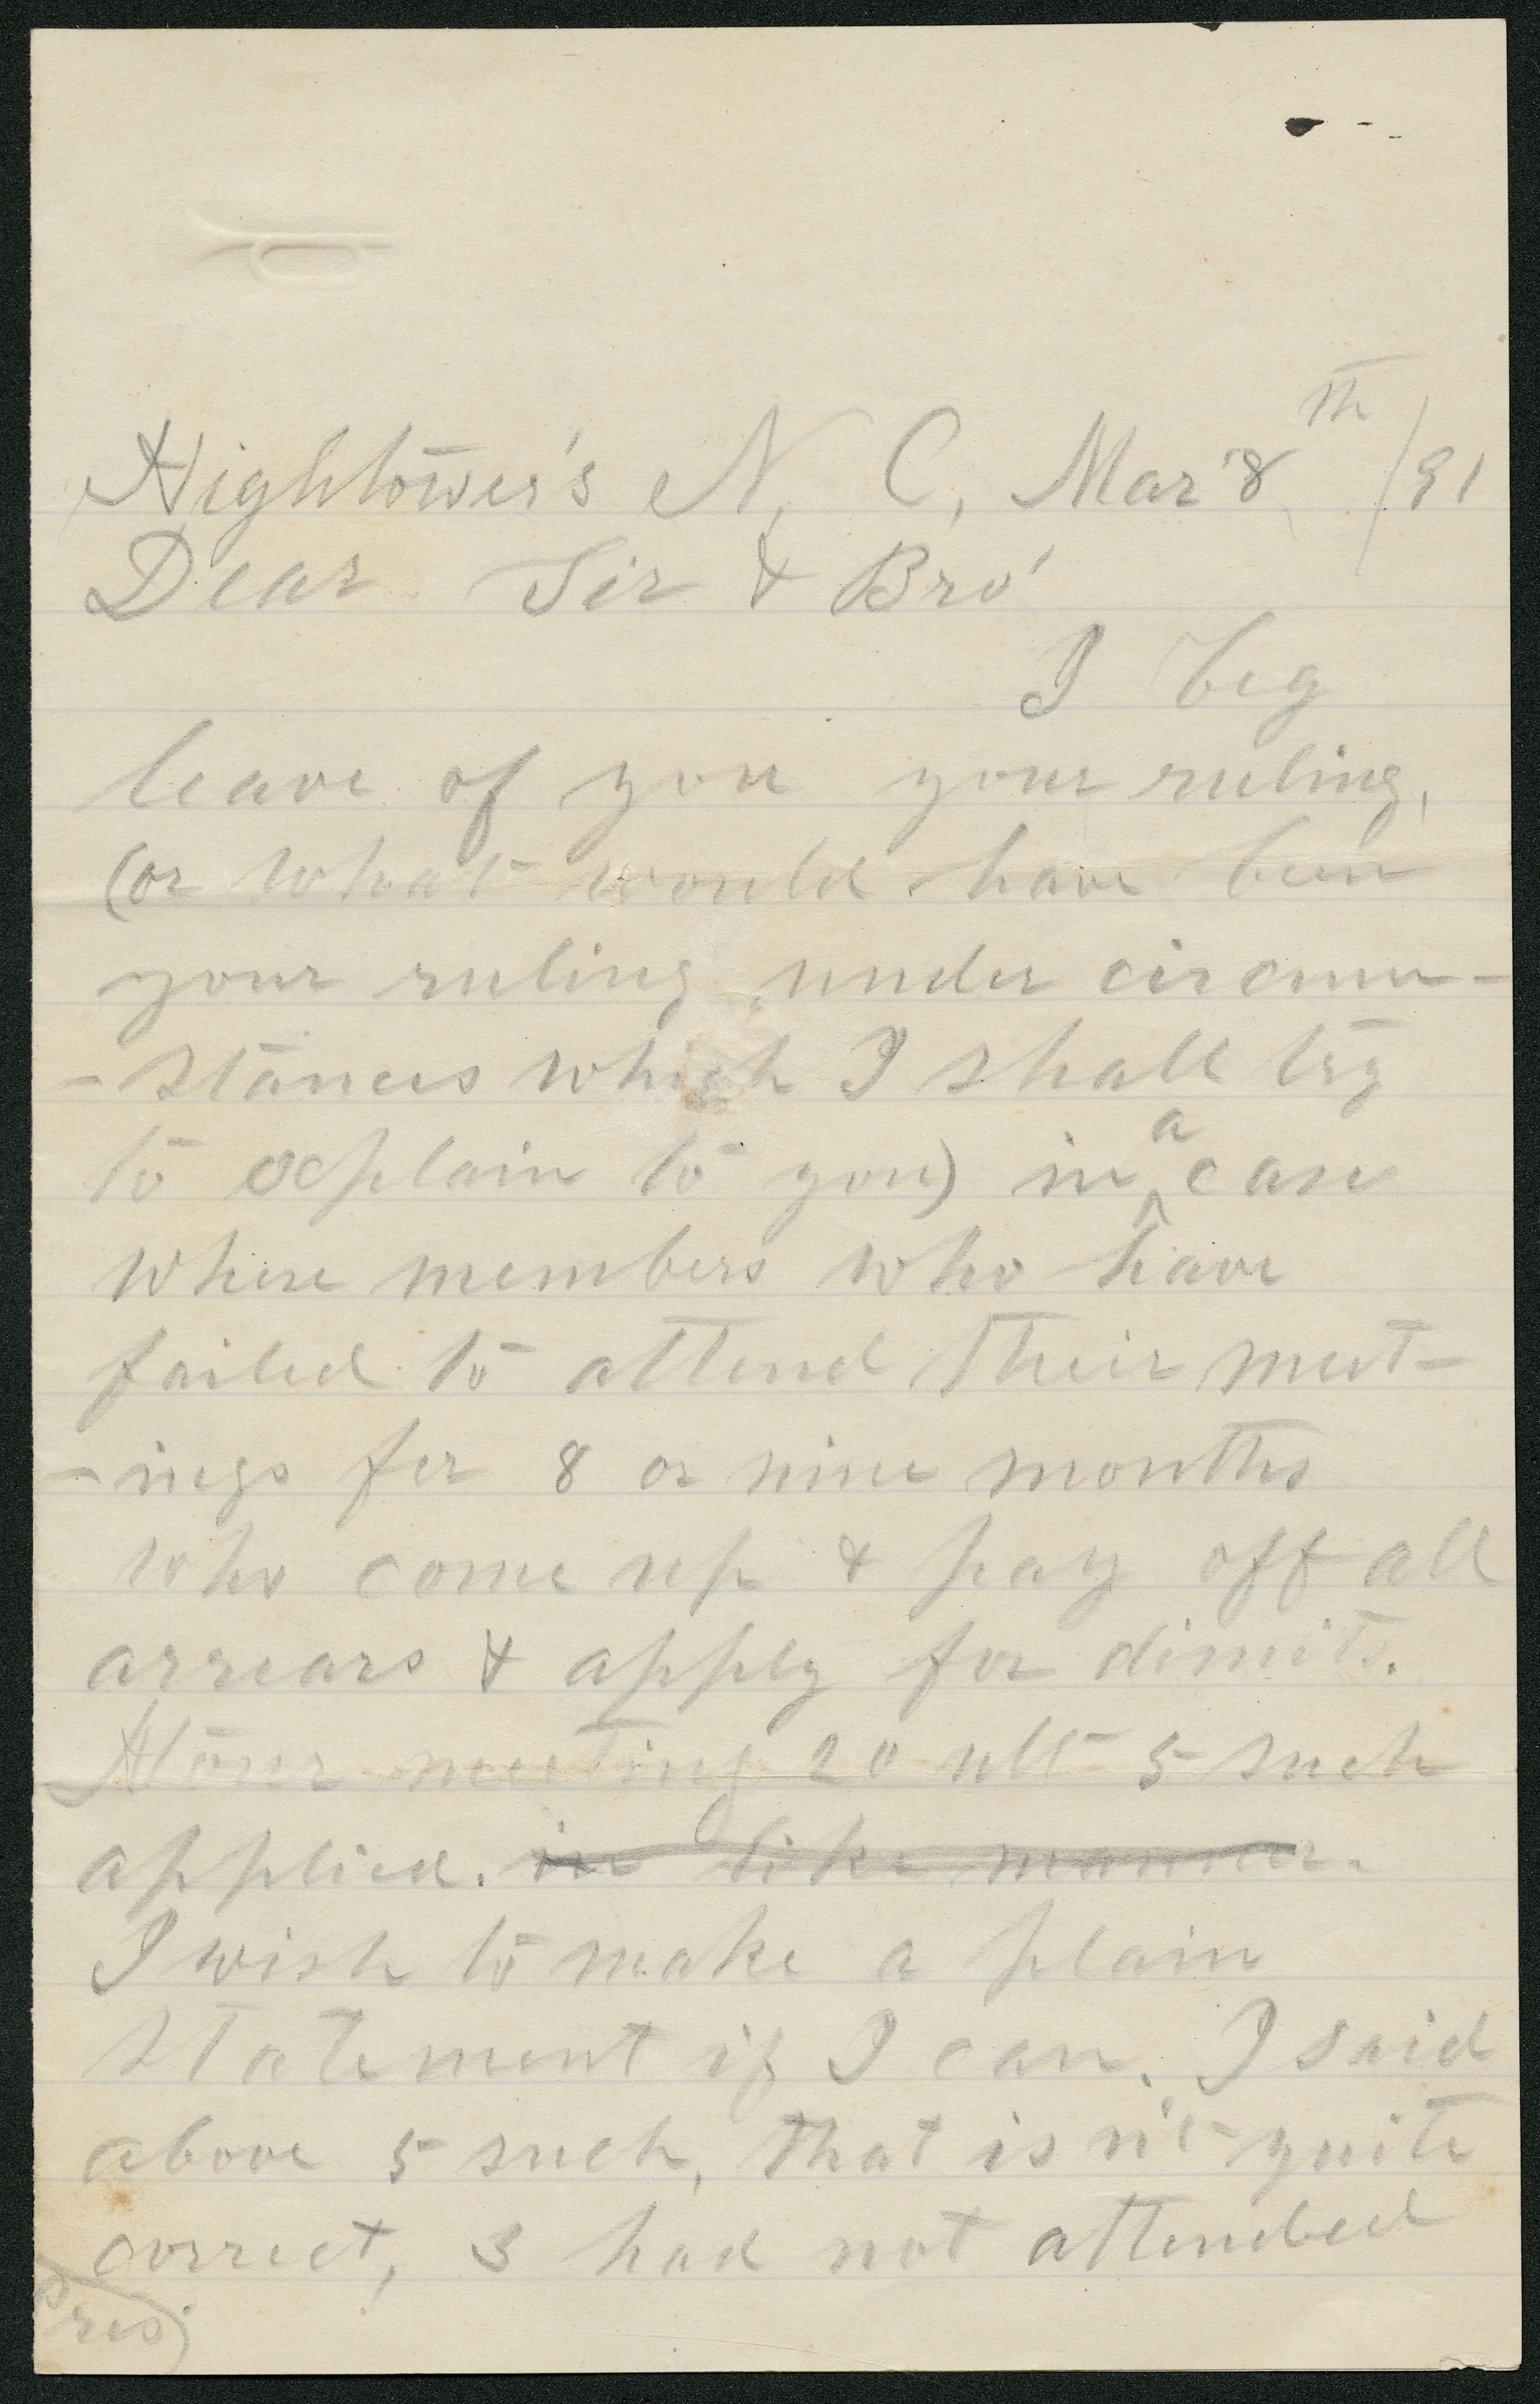 Hightower's N. C. Mar' 8th /91
Dear Sir & Bro'
I beg
leave of you your ruling,
(or what would have been
your ruling under circum-
-stances which I shall try
to explain to you) in a case
where members who have
failed to attend their meet-
-ings for 8 or nine months
who come up & pay off all
arrears & apply for dimits.
At our meeting 20 ult 5 such
applied. in like manner.
I wish to make a plain
statement if I can. I said
above 5 such, that isn't quite
correct, 3 had not attended
Pres